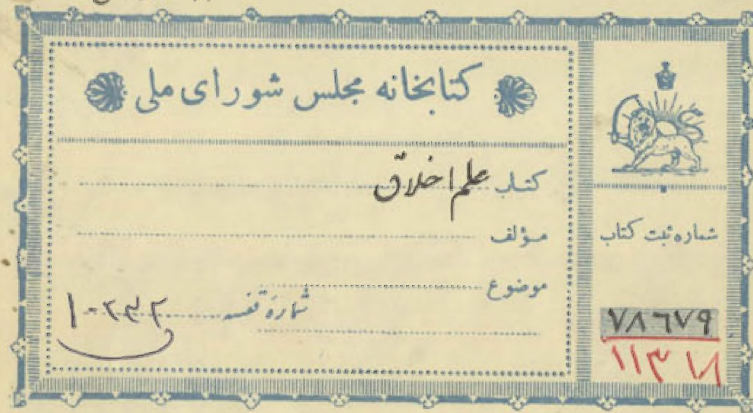 کتابخانه مجلس شورای ملی
کتاب علم اخلاق
مؤلف
موضوع
شماره قفسه
شماره ثبت کتاب
۷۸۶۷۹